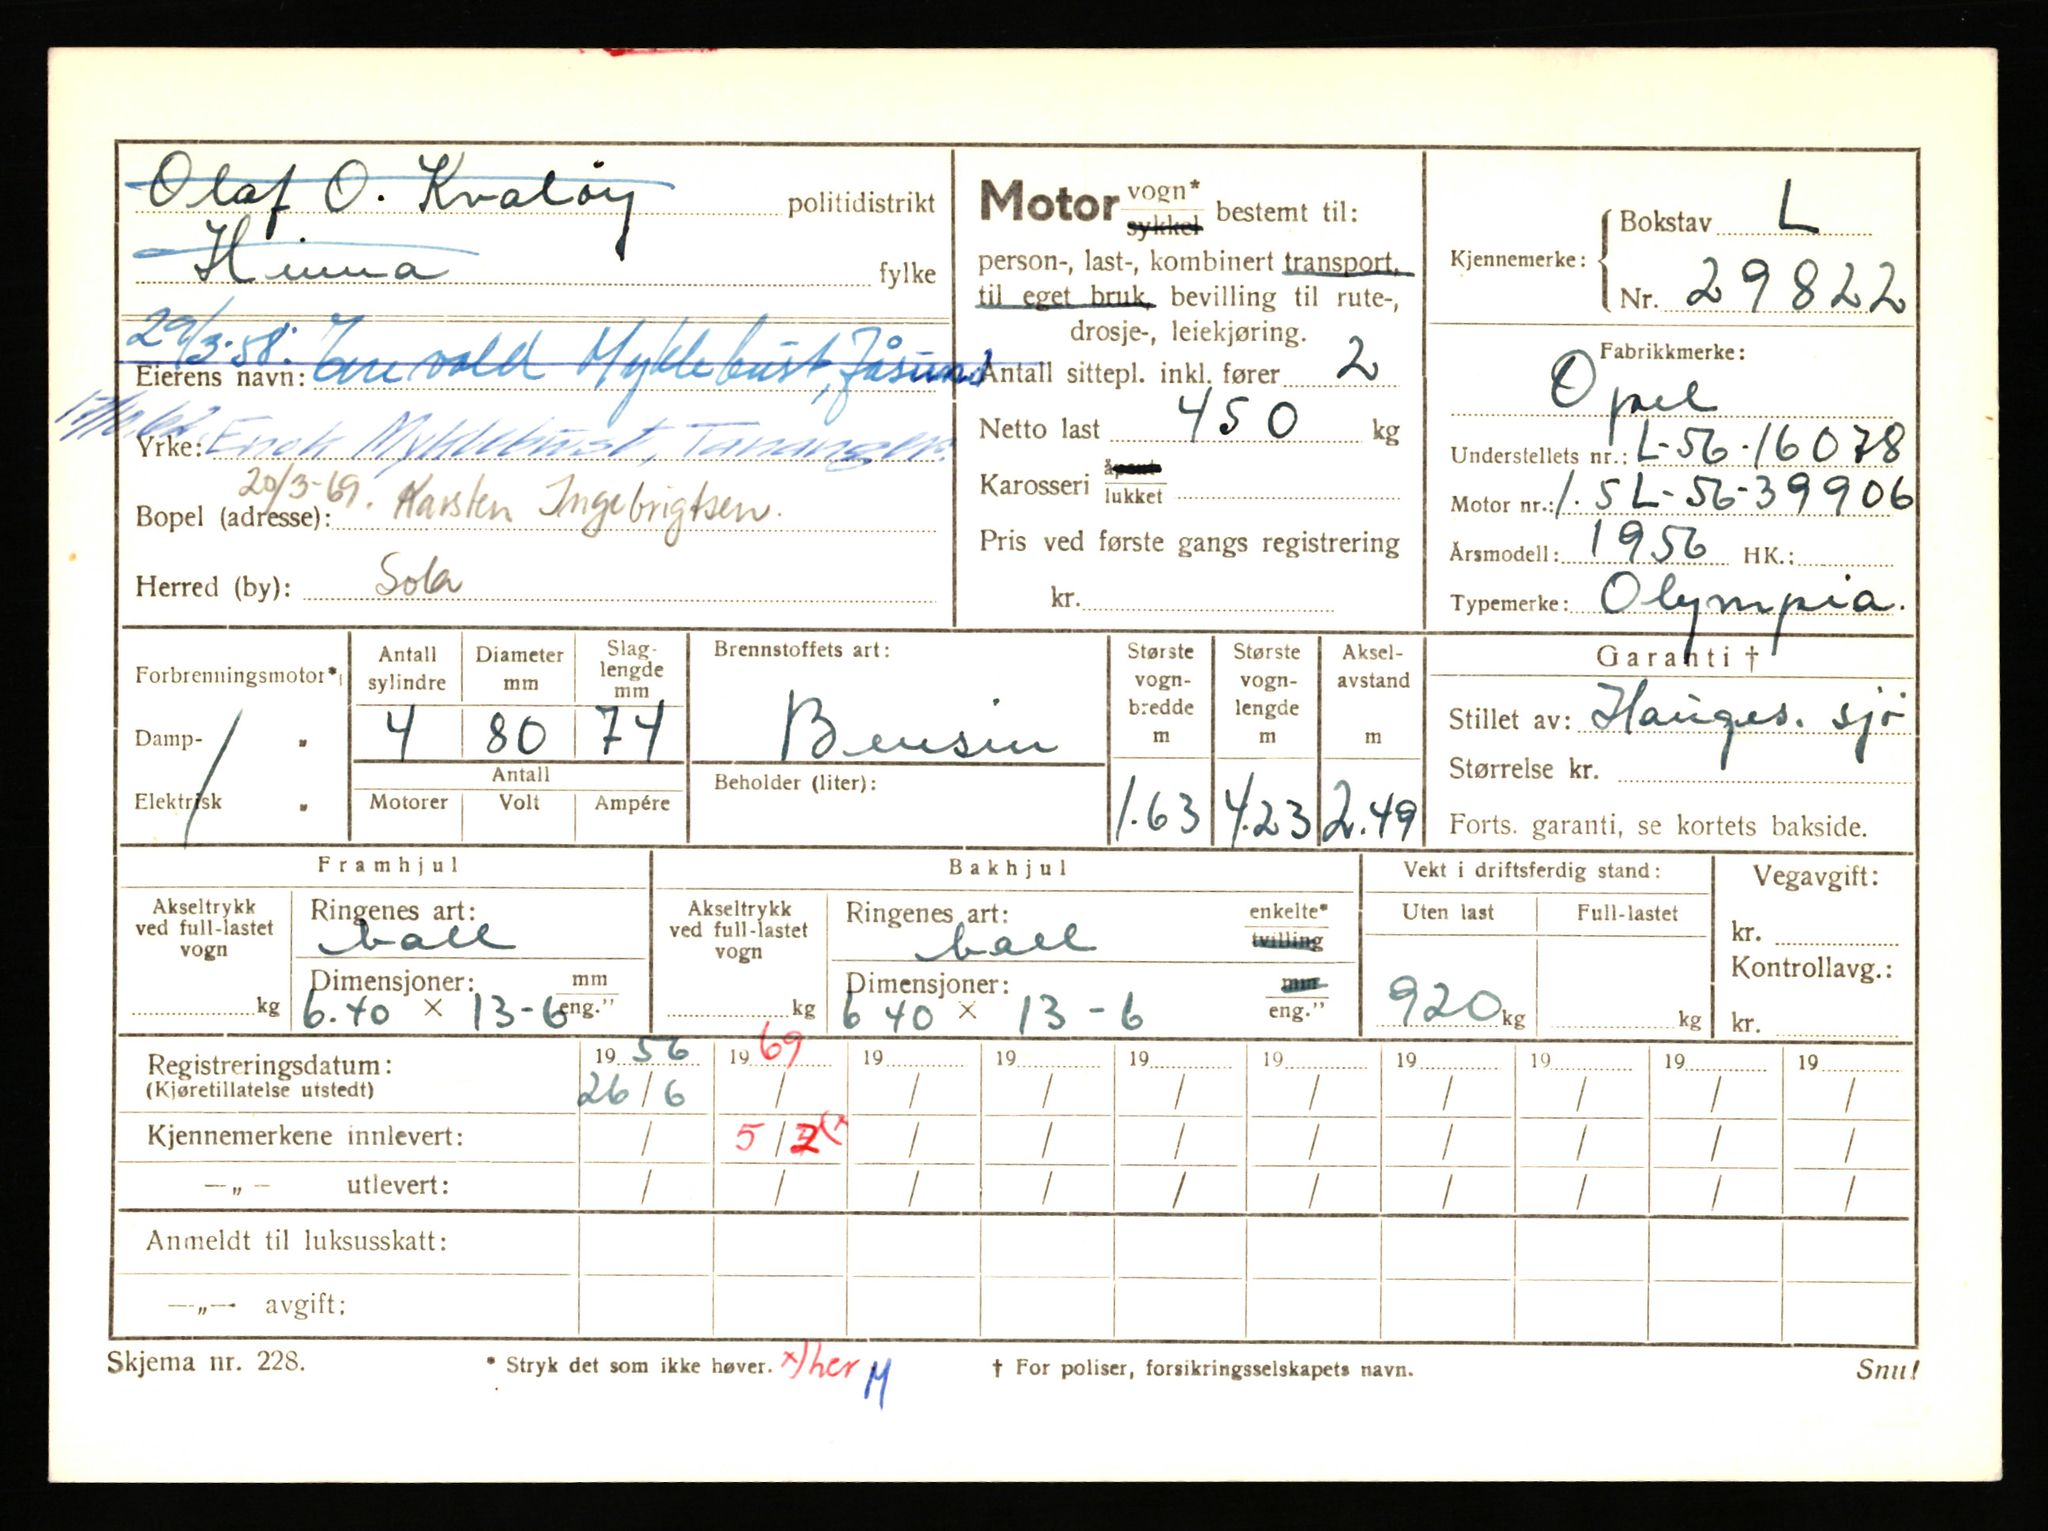 Olaf O. Kvaløy politidistrikt
Hinna fylke
29/3-58. Myklebust, Jåsund
Eierens navn:
Yrke: Enok Myklebust, Tananger.
20/3-69. Karsten Ingebrigtsen.
Bopel (adresse):
Herred (by): Sola
Motor vogn* sykkel bestemt til:
person-, last-, kombinert transport,
til eget bruk, bevilling til rute-,
drosje-, leiekjøring.
Antall sittepl. inkl. fører 2
Netto last 450 kg
Karosseri åpent lukket
Pris ved første gangs registrering
kr.
Kjennemerke: Bokstav L
Nr. 29822
Fabrikkmerke:
Opel
Understellets nr.: L-56-16078
Motor nr.: 1.5L-56-39906
Årsmodell: 1956 HK.:
Typemerke: Olympia.
Forbrenningsmotor*
Damp- „
Elektrisk „
Antall sylindre Diameter mm Slaglengde mm
4 80 74
Antall
Motorer Volt Ampére
Brennstoffets art:
Bensin
Beholder (liter):
Største vogn-bredde m 1.63
Største vogn-lengde m 4.23
Aksel-avstand m 2.49
Garanti †
Stillet av: Hauges. sjø
Størrelse kr.
Forts. garanti, se kortets bakside.
Framhjul
Akseltrykk ved full-lastet vogn kg
Ringenes art: ball
Dimensjoner: mm eng.”
6.40 × 13-6
Bakhjul
Akseltrykk ved full-lastet vogn kg
Ringenes art: enkelte* tvilling
ball
Dimensjoner: mm eng.”
6 40 × 13-6
Vekt i driftsferdig stand:
Uten last Full-lastet
920 kg kg
Vegavgift:
kr.
Kontrollavg.:
kr.
Registreringsdatum: 19 56 19 69 19 19 19 19 19 19 19 19
(Kjøretillatelse utstedt) 26/6 / / / / / / / / /
Kjennemerkene innlevert: / 5/2 x) / / / / / / / /
—„— utlevert: / / / / / / / / / /
Anmeldt til luksusskatt:
—„— avgift:
Skjema nr. 228. * Stryk det som ikke høver. x) her M † For poliser, forsikringsselskapets navn. Snu!